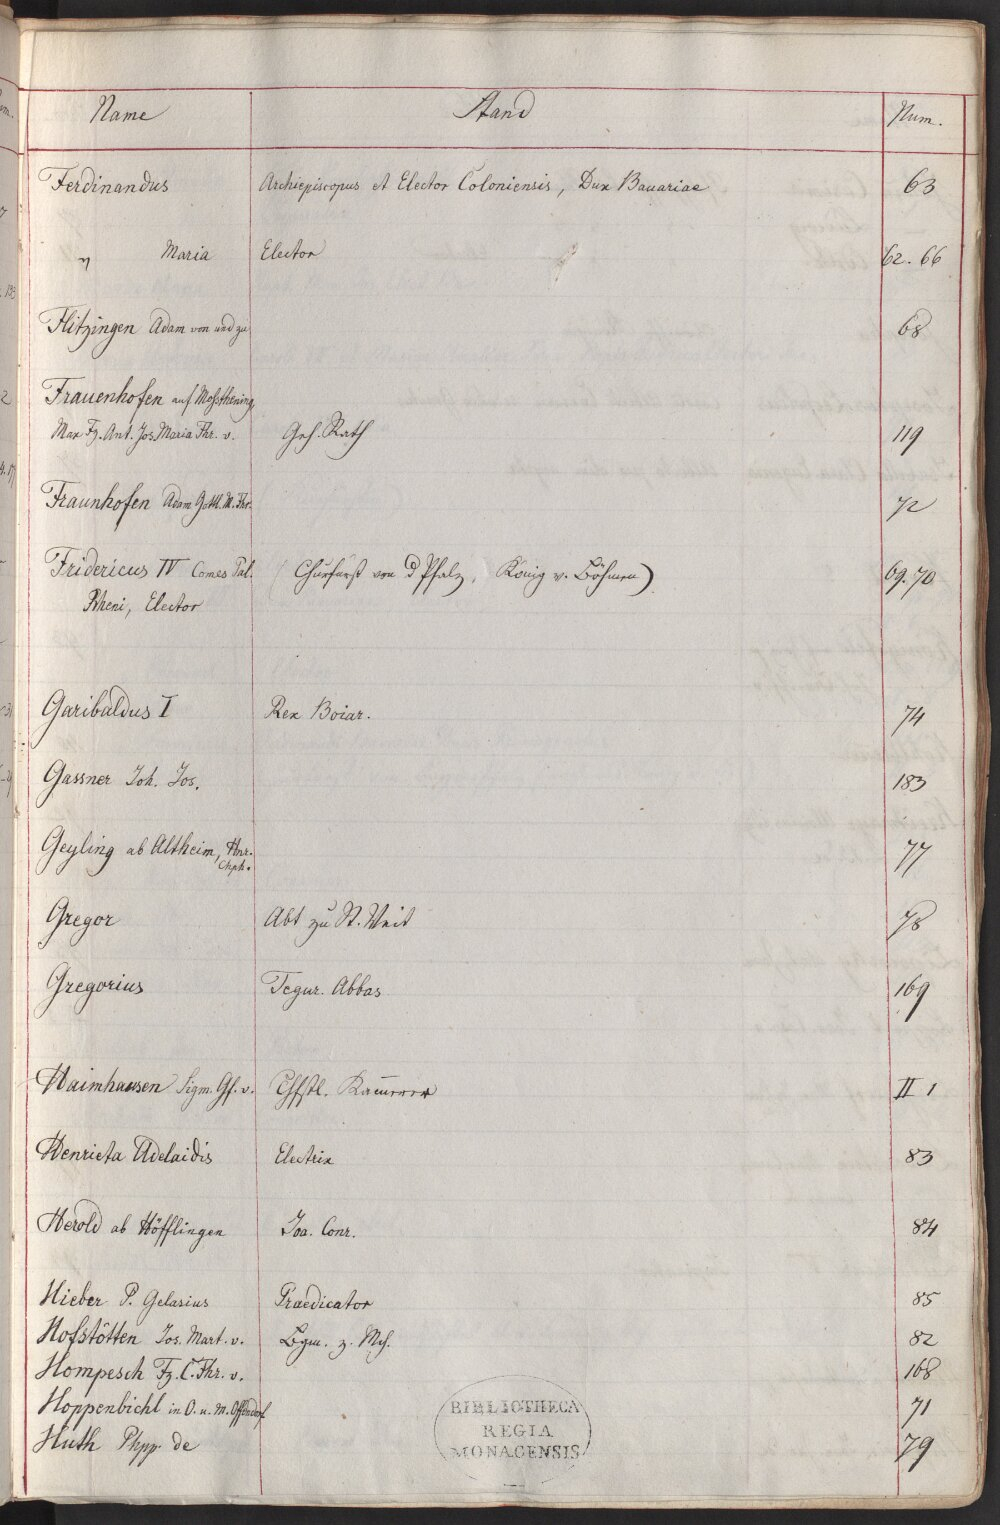 Name Stand Num.
Ferdinandus Archiepiscopus et Elector Coloniensis, Dux Bauariae 63
" Maria Elector 62. 66
Flitzingen Adam von und zu 68
Frauenhofen auf
Max Fz. Ant. Jos. Maria Fhr. v. Geh. Rath 119
Fraunhofen Adam Gottl. M. Fhr. 72
Fridericus IV Comes Pal. (Churfürst von d Pfalz, König v. Böhmen) 69. 70
Rheni, Elector
Garibaldus I Rex Boiar. 74
Gassner Joh. Jos. 183
Geyling ab Altheim, Hnr. 77
Chph.
Gregor Abt zu St. Veit 78
Gregorius Tegur. Abbas 169
Haimhausen Sigm. Gf. v. Chfstl. Kaemerer II 1
Henrieta Adelaidis Electrix 83
Herold ab Höfflingen Joa. Conr. 84
Hieber P. Gelasius Praedicator 85
Hofstötten Jos. Mart. v. Bgm. z. Mch. 82
Hompesch Fz. C. Fhr. v. 168
Hoppenbichl in O. u. M. Offendorf 71
Huth Phpp. de 79
BIBLIOTHECA
REGIA
MONACENSIS